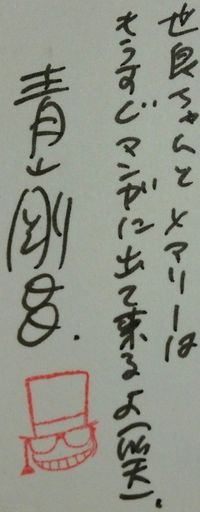 世良ちゃんとメアリーは
もうすぐマンガに出て来るよ(笑)。
青山剛昌.